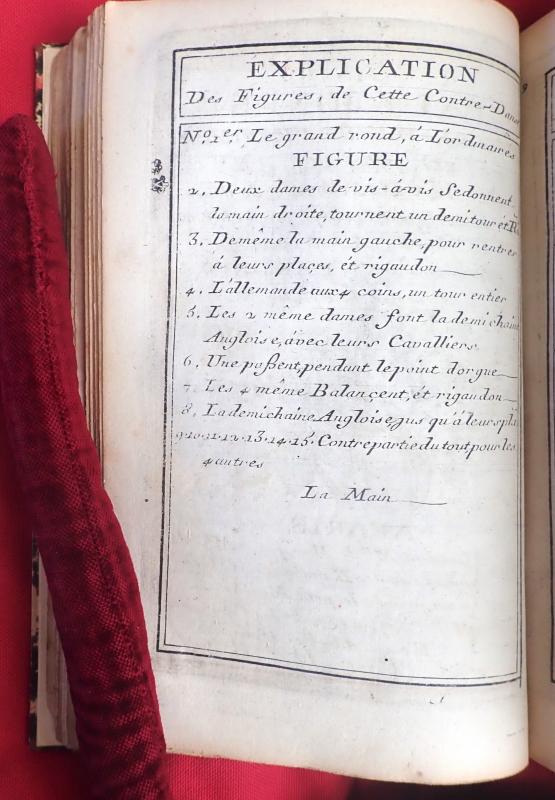 EXPLICATION
Des Figures, de Cette Contre-Danse
No. 1er. Le grand rond, á L'ordinaires
FIGURE
2. Deux dames de vis-á-vis Sedonnent
la main droite, tournent un demi tour ét
3. Demême la main gauche, pour rentrer
á leurs places, ét rigaudon
4. L'allemande aux 4 coins, un tour entier
5. Les 2 même dames font la demi chaine
Angloise, ávec leurs Cavalliers
6. Une poßent, pendant le point d'orgue
7. Les 4 même Balançent, ét rigaudon
8. La demichaine Angloise jus qu'á leurs
9·10·11·12·13·14·15· Contrepartie du tout pour les
4 autres
La Main